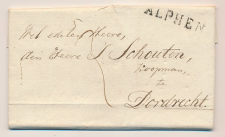 ALPHEN
Wel edele Heere,
den Heere J Schouten,
Koopman,
te
Dordrecht.